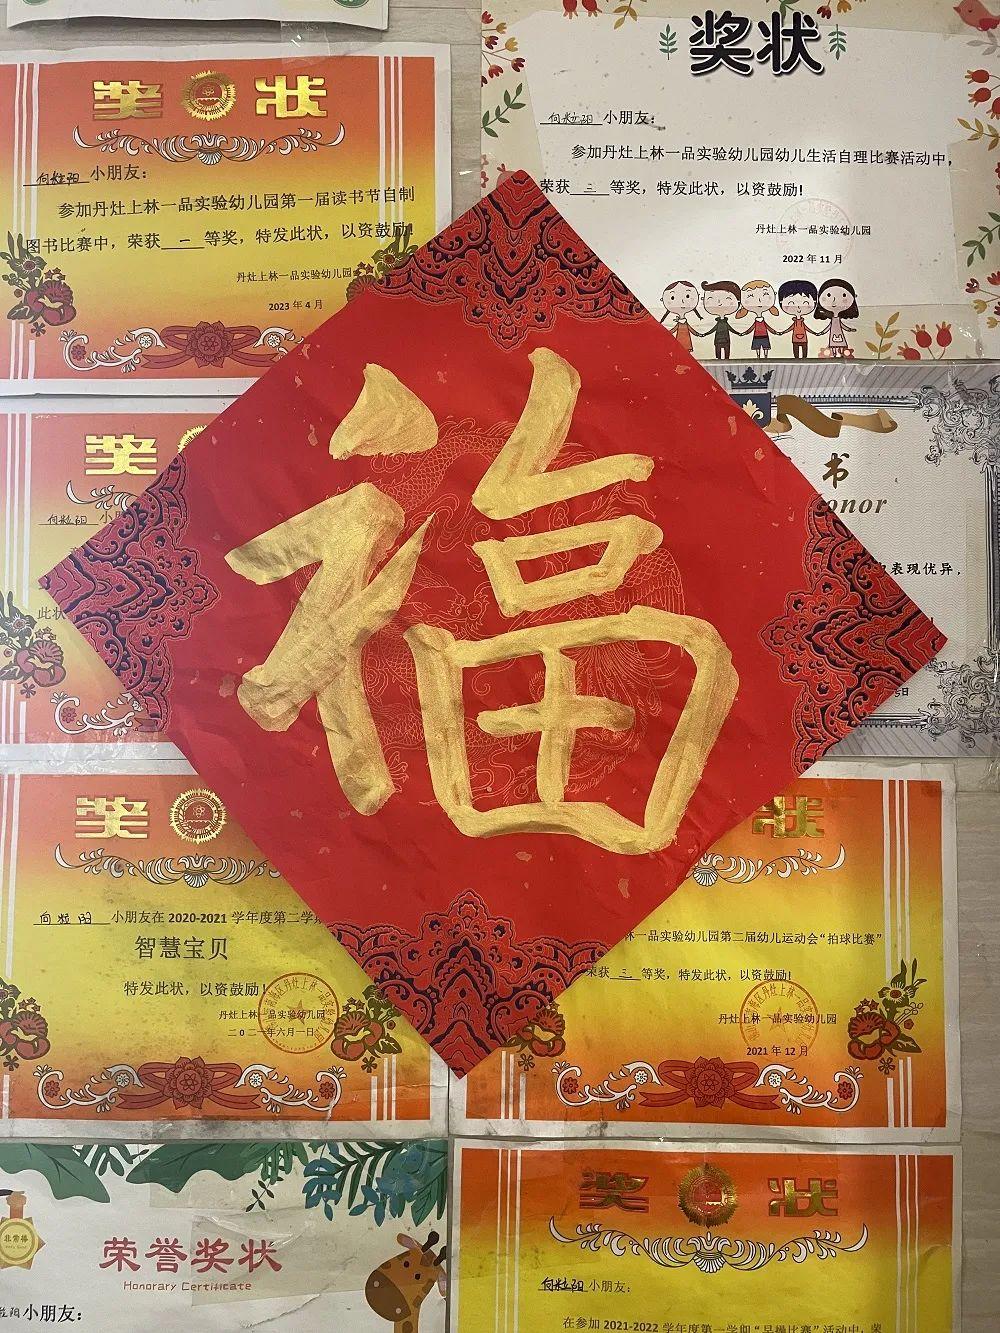 奖状
向粒阳 小朋友：
参加丹灶上林一品实验幼儿园第一届读书节自制
图书比赛中，荣获 一 等奖，特发此状，以资鼓励！
丹灶上林一品实验幼儿园
2023年4月
奖状
向粒阳 小朋友：
参加丹灶上林一品实验幼儿园幼儿生活自理比赛活动中，
荣获 三 等奖，特发此状，以资鼓励！
丹灶上林一品实验幼儿园
2022年11月
福
奖
向粒阳 小
此状
书
onor
表现优异，
日
奖
向粒阳 小朋友在2020-2021学年度第二学
智慧宝贝
特发此状，以资鼓励！
丹灶上林一品实验幼儿园
二0二一年六月一日
状
一品实验幼儿园第二届幼儿运动会“拍球比赛”
荣获 三 等奖，特发此状，以资鼓励！
丹灶上林一品实验幼儿园
2021年12月
非常棒
荣誉奖状
Honorary Certificate
粒阳小朋友：
奖状
向粒阳 小朋友：
在参加2021-2022学年度第一学期“早操比赛”活动中，荣